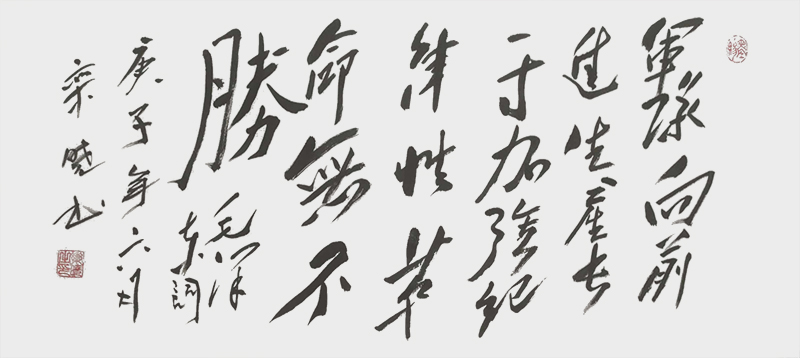 軍隊向前
進生產長
一寸加強紀
律性革
命無不
勝
毛澤
東詞
庚子年六月
栾曉书